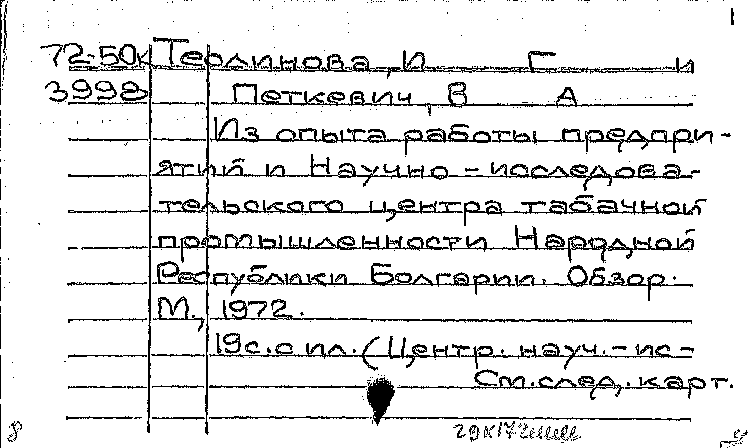 1
72-50к Терлинова, И Г и
3998 Петкевич, В А
Из опыта работы предпри-
ятий и Научно-исследова-
тельского центра табачной
промышленности Народной
Республики Болгарии. Обзор.
М., 1972.
19с.с ил. (Центр. науч.-ис-
См.след.карт.
8